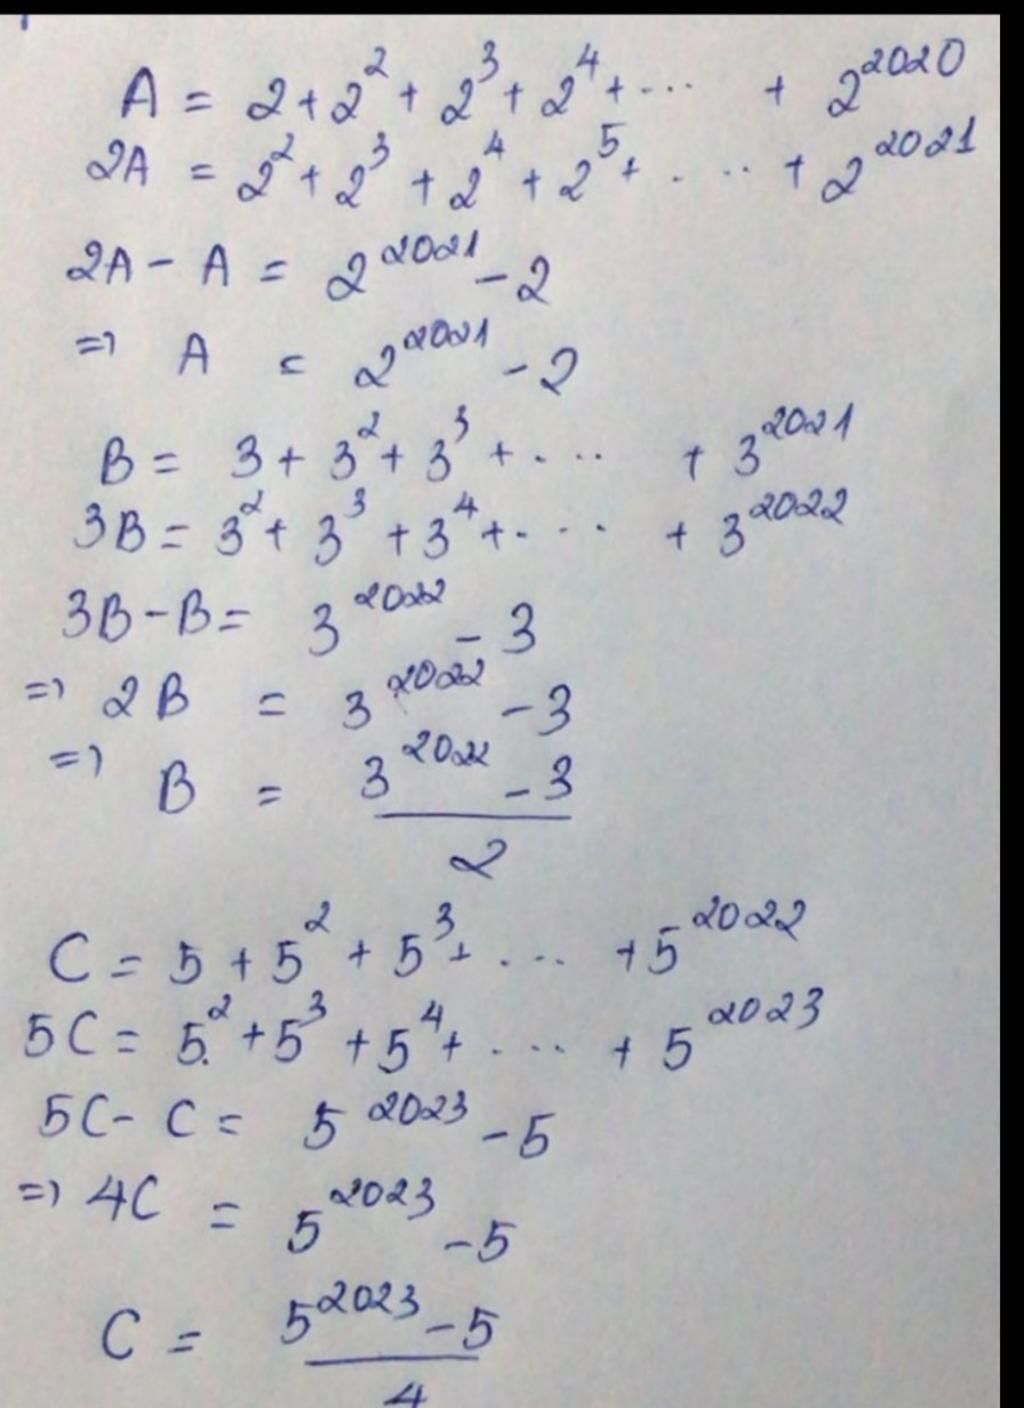 A = 2 + 2² + 2³ + 2⁴ + ... + 2²⁰²⁰
2A = 2² + 2³ + 2⁴ + 2⁵ + ... + 2²⁰²¹
2A - A = 2²⁰²¹ - 2
=> A = 2²⁰²¹ - 2
B = 3 + 3² + 3³ + ... + 3²⁰²¹
3B = 3² + 3³ + 3⁴ + ... + 3²⁰²²
3B - B = 3²⁰²² - 3
=> 2B = 3²⁰²² - 3
=> B = 3²⁰²² - 3
2
C = 5 + 5² + 5³ + ... + 5²⁰²²
5C = 5² + 5³ + 5⁴ + ... + 5²⁰²³
5C - C = 5²⁰²³ - 5
=> 4C = 5²⁰²³ - 5
C = 5²⁰²³ - 5
4